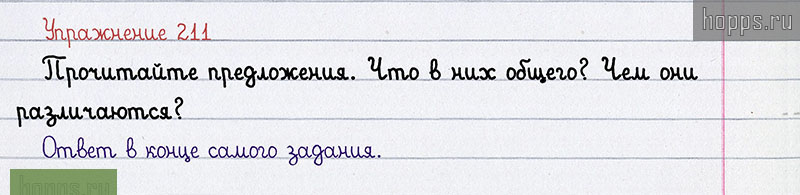 hopps.ru
Упражнение 211
Прочитайте предложения. Что в них общего? Чем они
различаются?
Ответ в конце самого задания.
hopps.ru